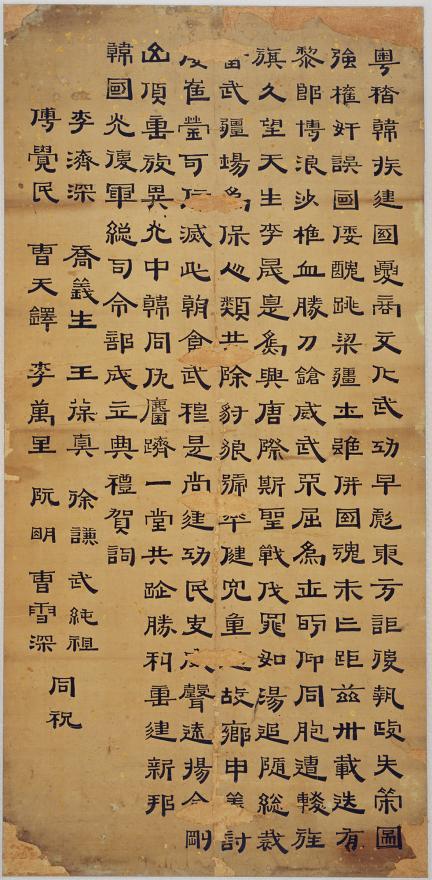 粤稽韓族建國夏商文化武功早彪東方詎後執政失策圖
強權奸誤國倭醜跳梁疆土雖併國魂未亡距茲卅載迭有
黎郎博浪沙椎血勝刀鎗威武不屈為世所仰同胞遭旌
旗久望天生李晟是為興唐際斯聖戰伐罪如湯追隨總裁
武疆場為保人類共除豺狼號健兒重故鄉申討
崔瑩可作滅此朝食武穆是尚建功民史聲遠揚今剛
重放異光中韓同仇麕躋一堂共勝利重建新邦
韓國光復軍總司令部成立典禮賀詞
李濟深 喬義生 王葆真 徐謙 武純祖
傅覺民 曹天鐸 李萬里 阮明 曹雪深
同祝